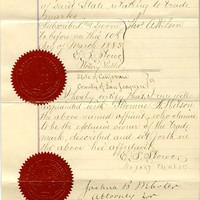 of said State, relating to Trade
Marks.
Subscribed & sworn
to before me this 10th
day of March 1885
Notary Public
State of California
County of San Francisco
I hereby certify that I am well
acquainted with
the above named affiant, who claims
to be the exclusive owner of the Trade
mark, described and set forth in
the above his affidavit
Notary Public
Attorney for